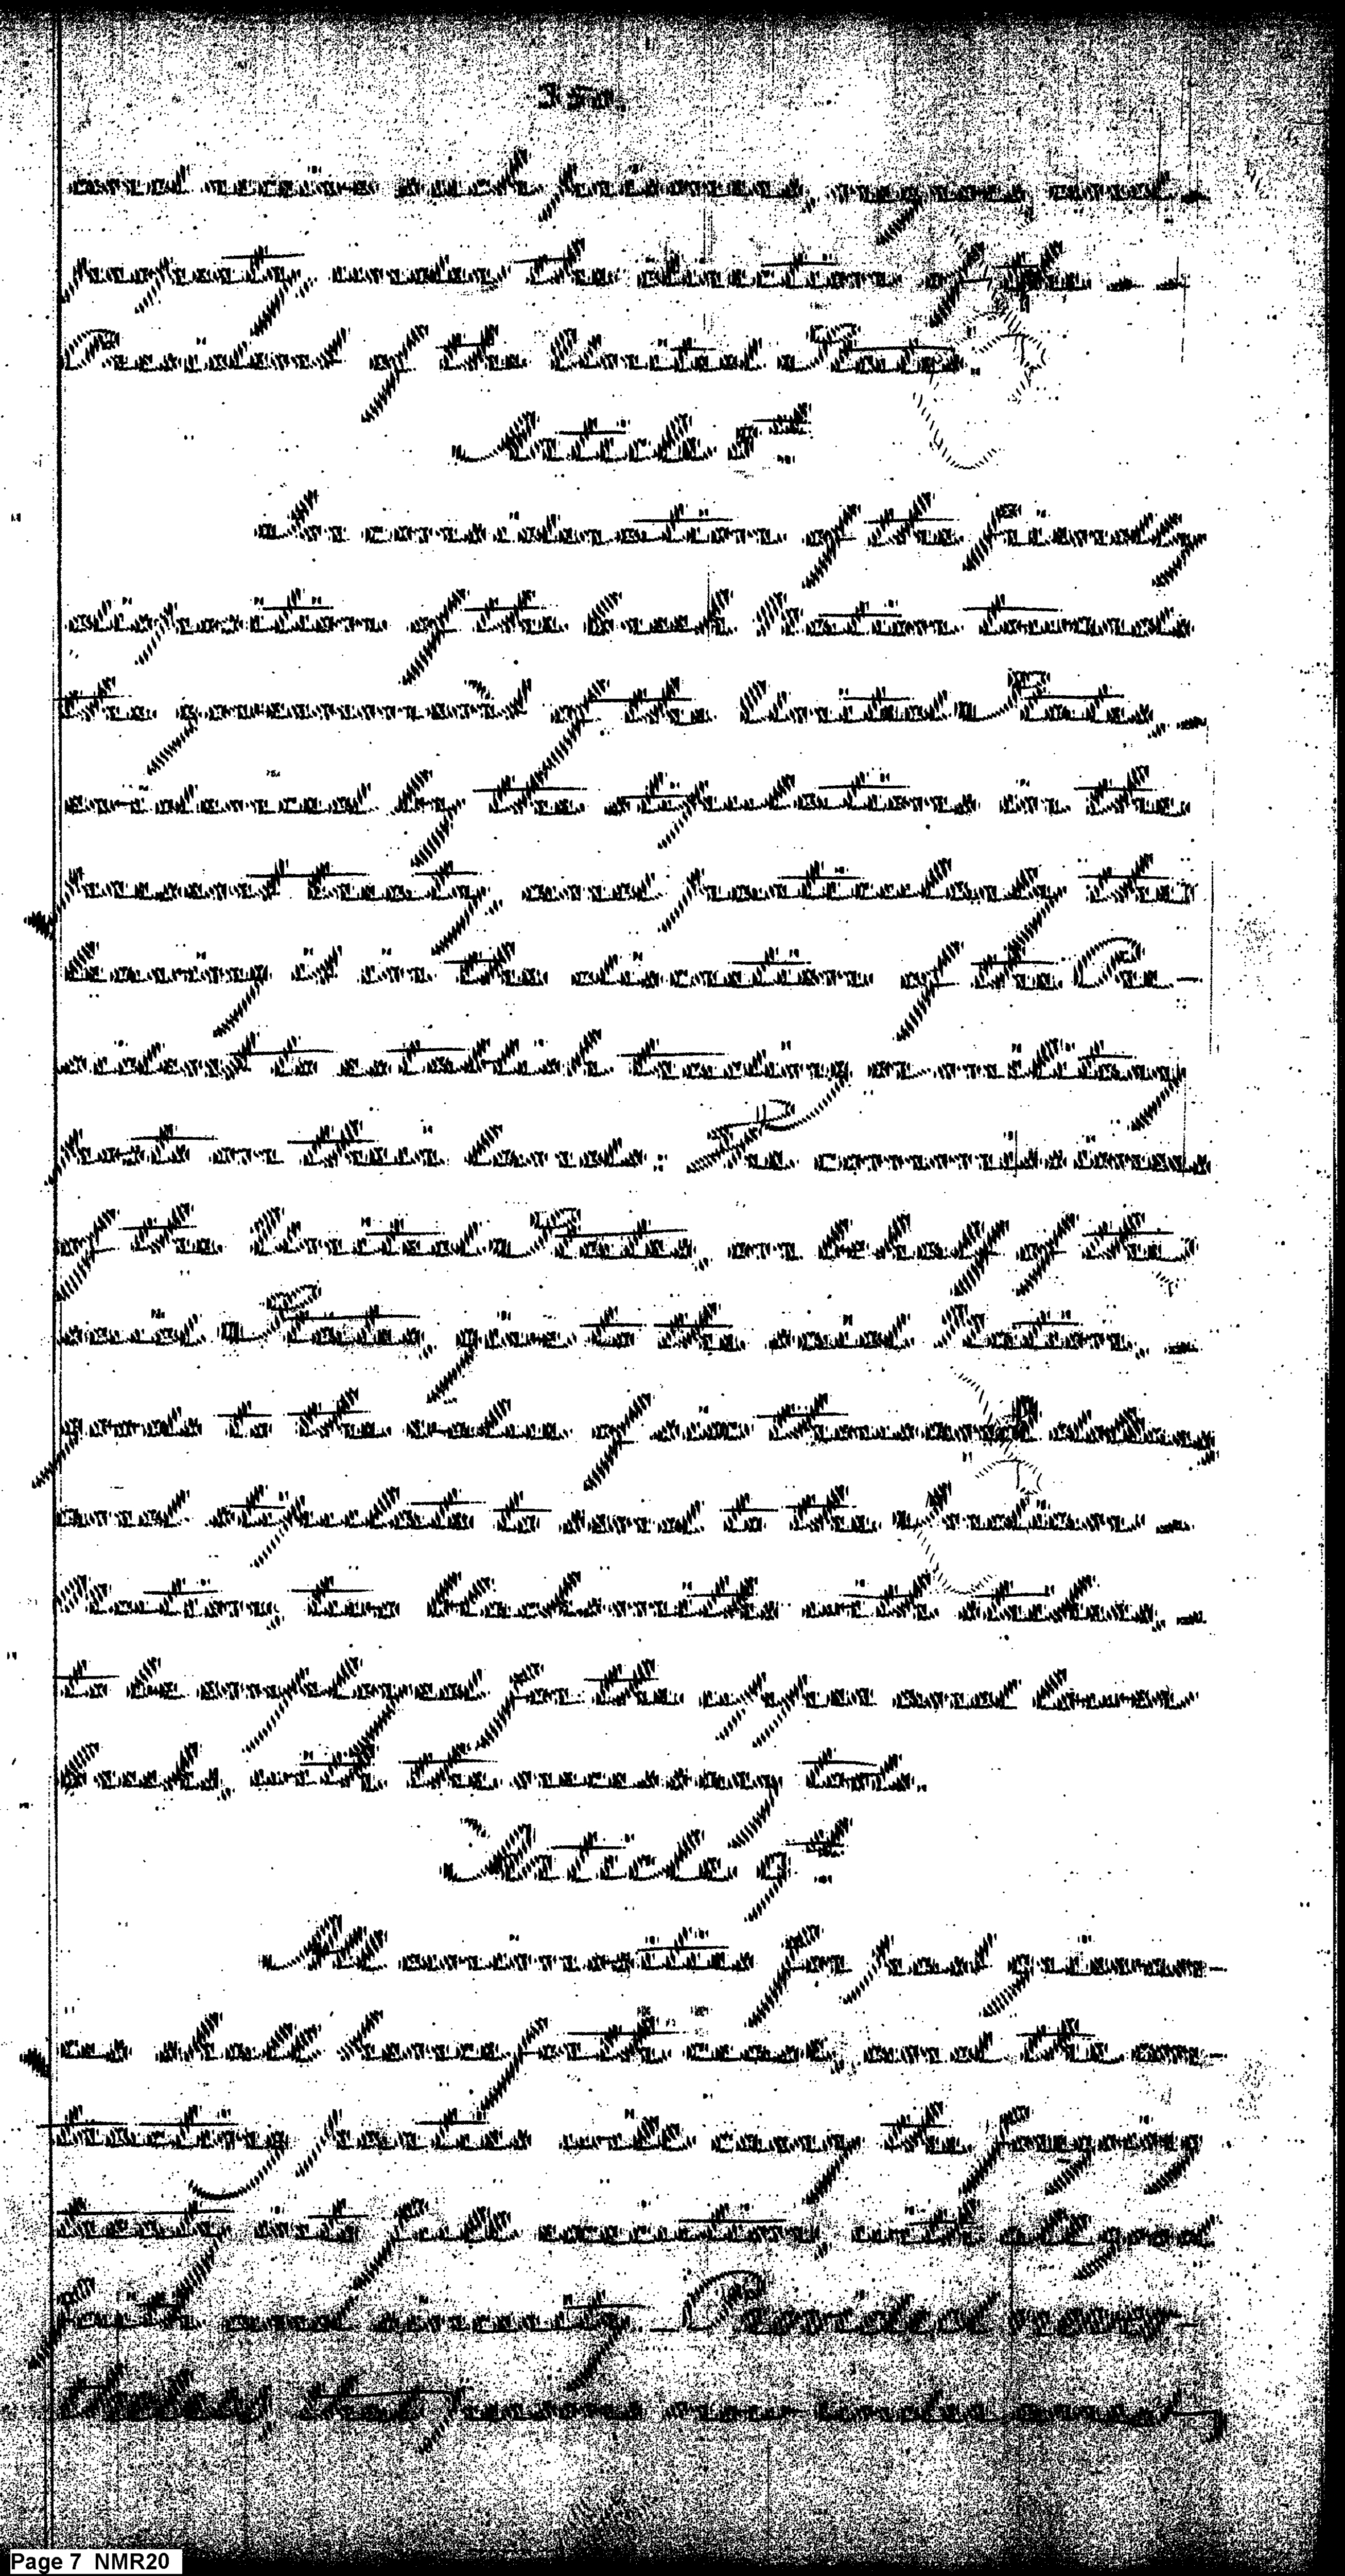 and receive such prisoners, negroes, and
property, under the direction of the
President of the United States.
Article 8th
In consideration of the friendly
disposition of the Creek Nation towards
the government of the United States,
evidenced by the stipulations in the
present treaty, and particularly the
leaving it in the discretion of the Pre-
sident to establish trading or military
posts on their lands: The commissioners
of the United States, on behalf of the
said States, give to the said Nation,
goods to the value of six thousand dollars,
and stipulate to send to the Indian
Nation, two blacksmiths with strikers,
to be employed for the upper and lower
Creeks, with the necessary tools.
Article 9th
All animosities for past grievan-
ces shall henceforth cease, and the con-
tracting parties will carry the foregoing
treaty into full execution, with all good
faith and sincerity. Provided never-
theless, that persons now under arrest,
Page 7 NMR20